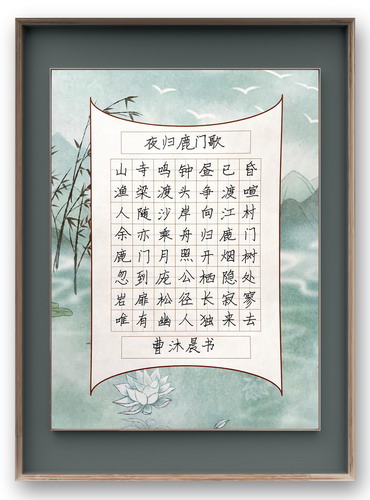 夜归鹿门歌
山寺鸣钟昼已昏
渔梁渡头争渡喧
人随沙岸向江村
余亦乘舟归鹿门
鹿门月照开烟树
忽到庞公栖隐处
岩扉松径长寂寥
唯有幽人独来去
曹沐晨书